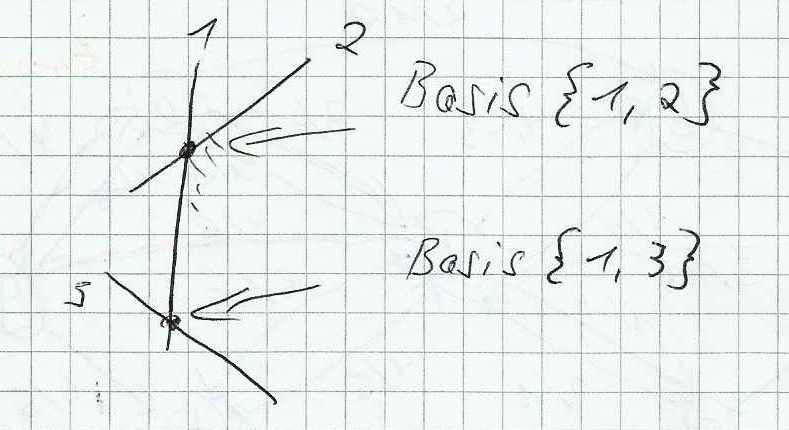 1 2
Basis {1, 2}
Basis {1, 3}
3